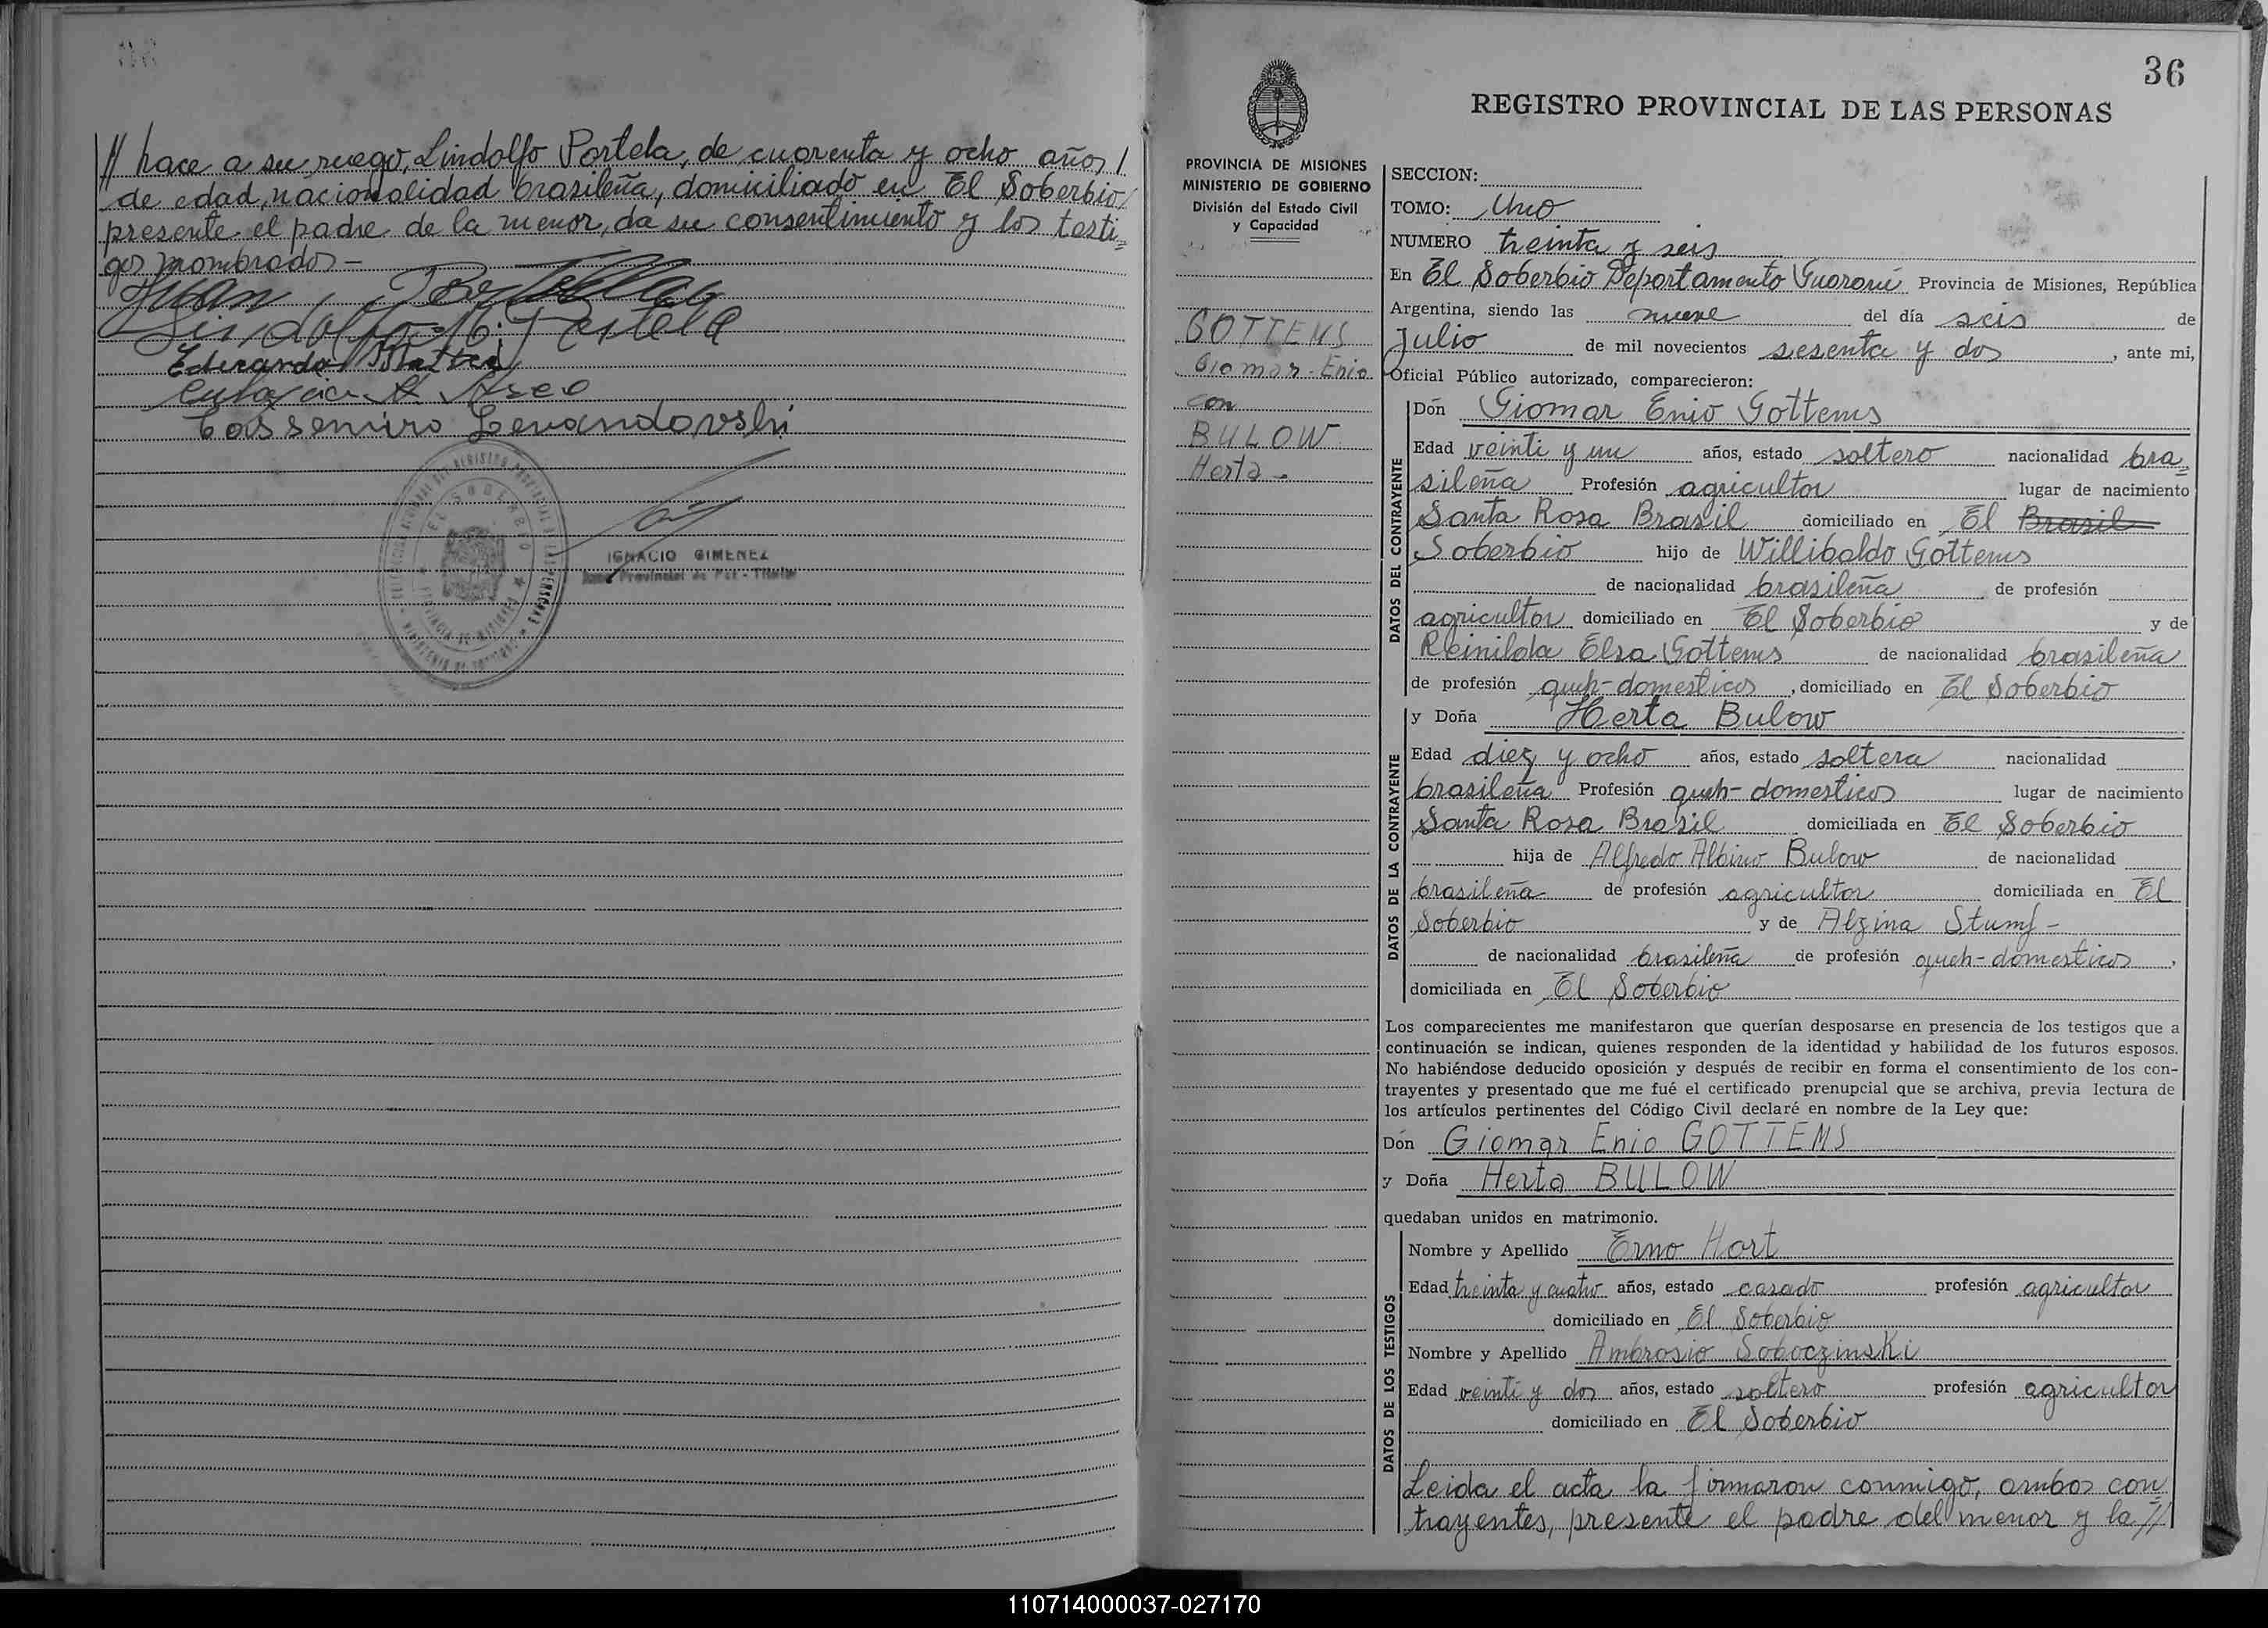 // hace a su ruego, Lindolfo Portela, de cuarenta y ocho años /
de edad, nacionalidad brasileña, domiciliado en El Soberbio/
presente el padre de la menor, da su consentimiento y los testi=
gos nombrados-
Juan
Lindolfo M. Portela
Eduardo
Cassemiro Levandovski
EL SOBERBIO
PROVINCIA DE MISIONES
IGNACIO GIMENEZ
36
REGISTRO PROVINCIAL DE LAS PERSONAS
PROVINCIA DE MISIONES
MINISTERIO DE GOBIERNO
División del Estado Civil
y Capacidad
GOTTEMS
Giomar-Enio
con
BULOW
Herta-
SECCION:
TOMO: Uno
NUMERO treinta y seis
En El Soberbio Departamento Guaraní Provincia de Misiones, República
Argentina, siendo las nueve del día seis de
Julio de mil novecientos sesenta y dos, ante mi,
Oficial Público autorizado, comparecieron:
DATOS DEL CONTRAYENTE
Don Giomar Enio Gottems
Edad veinti y un años, estado soltero nacionalidad bra=
sileña Profesión agricultor lugar de nacimiento
Santa Rosa Brasil domiciliado en El Brasil
Soberbio hijo de Willibaldo Gottems
de nacionalidad brasileña de profesión
agricultor domiciliado en El Soberbio y de
Reinilda Elsa Gottems de nacionalidad brasileña
de profesión queh-domesticos, domiciliado en El Soberbio
DATOS DE LA CONTRAYENTE
y Doña Herta Bulow
Edad diez y ocho años, estado soltera nacionalidad
brasileña Profesión queh-domesticos lugar de nacimiento
Santa Rosa Brasil domiciliada en El Soberbio
hija de Alfredo Albino Bulow de nacionalidad
brasileña de profesión agricultor domiciliada en El
Soberbio y de Alzina Stumf-
de nacionalidad brasileña de profesión queh-domesticos,
domiciliada en El Soberbio
Los comparecientes me manifestaron que querían desposarse en presencia de los testigos que a
continuación se indican, quienes responden de la identidad y habilidad de los futuros esposos.
No habiéndose deducido oposición y después de recibir en forma el consentimiento de los con-
trayentes y presentado que me fué el certificado prenupcial que se archiva, previa lectura de
los artículos pertinentes del Código Civil declaré en nombre de la Ley que:
Don Giomar Enio GOTTEMS
y Doña Herta BULOW
quedaban unidos en matrimonio.
DATOS DE LOS TESTIGOS
Nombre y Apellido Erno Hart
Edad treinta y cuatro años, estado casado profesión agricultor
domiciliado en El Soberbio
Nombre y Apellido Ambrosio Soboczinski
Edad veinti y dos años, estado soltero profesión agricultor
domiciliado en El Soberbio
Leida el acta la firmaron conmigo, ambos con=
trayentes, presente el padre del menor y la //
110714000037-027170